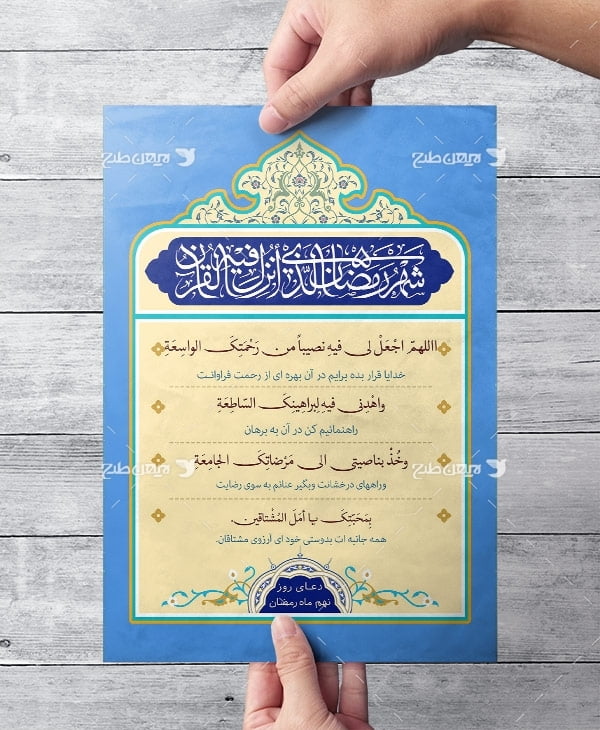 شَهْرُ رَمَضَانَ الَّذِي أُنْزِلَ فِيهِ الْقُرْآنُ
االلهمّ اجْعَلْ لی فیهِ نصیباً من رَحْمَتِکَ الواسِعَةِ
خدایا قرار بده برایم در آن بهره ای از رحمت فراوانت
واهْدِنی فیهِ لِبراهینِکَ السّاطِعَةِ
راهنمائیم کن در آن به برهان
وخُذْ بناصیتی الی مَرْضاتِکَ الجامِعَةِ
وراههای درخشانت وبگیر عنانم به سوی رضایت
بِمَحَبّتِکَ یا أمَلَ المُشْتاقین.
همه جانبه ات بدوستی خود ای آرزوی مشتاقان.
دعای روز
نهم ماه رمضان
میهن طرح
میهن طرح
میهن طرح
میهن طرح